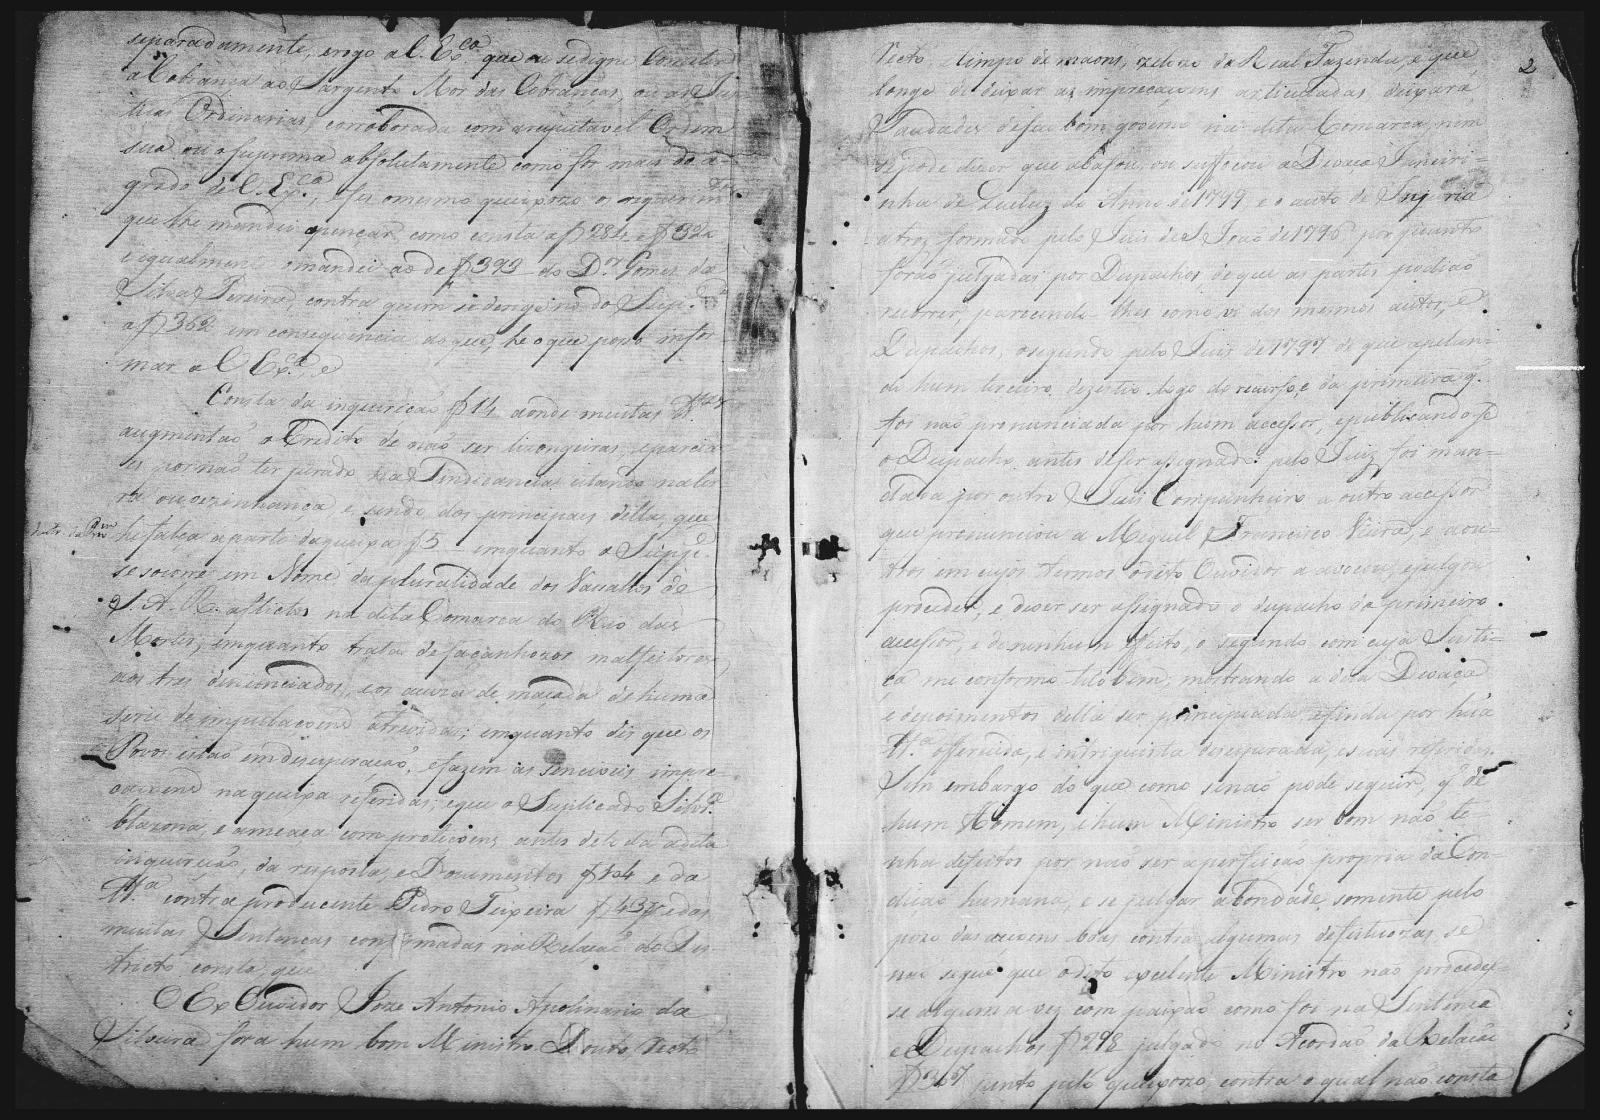 separadamente, rogo a V. Ex.ca que ou se digne Cometer
a Cobrança ao Sargento Mor das Cobranças, ou as Jus
tiças Ordinarias, corroborada com a respeitavel Ordem
sua ou a suprema absolutamente como for mais do a-
grado de V. Ex.ca, o mesmo queixozo
que lhe mandei apençar, como consta a f 284 e f 324
e igualmente mandei as de f 393 do D.r Gomes da
Silva Pereira, contra quem se derigi no do Sup.e
a f 362 em consequencia do que, he o que posso infor-
mar a V. Ex.ca e
Consta da inquirição f 14 aonde muitas tt.as
augmentão o Credito de não ser lizongeiras, e parcia-
es por não ter jurado na Sindicancia, estando na ter-
ra ou vezinhança, e sendo dos principaes della, que
he falça a parte da queixa f 5 emquanto o Supp.e
se socorre em Nome da pluralidade dos Vassallos de
S. A. R. aflictos na dita Comarca do Rio das
Mortes, emquanto trata de façanhozos malfeitores,
aos tres denunciados, e os acuza de maçada de huma
serie de imputaçoens atrevidas; emquanto dis que os
Povos estão em desesperação, e fazem as sensiveis impre-
caçoens na queixa referidas; e que o Suplicado Silvr.a
blazona, e ameaça com proteçoens, antes dele da adita
inquirição, da resposta, e Documentos f 104 e da
tt.a contra producente Pedro Teixeira f 43 e das
muitas Sentenças confirmadas na Relação do Des
tricto consta, que
O Ex Ouvidor Joze Antonio Apolinario da
Silveira fora hum bom Ministro Douto, recto
2
recto, e limpo de maons, zelozo da Real Fazenda, e que
longe de deixar as impreçaçoens articuladas, deixará
Saudades de seu bom governo na dita Comarca, nem
se pode dizer que abafou, ou suffocou a Devaça Janeiri-
nha de Queluz do Anno de 1799, e o auto de Injuria
atroz formado pelo Juis de S. João de 1796 por quanto
forão julgadas por Despachos de que as partes podião
recorrer, parecendo-lhes como vi dos mesmos autos, e
Despachos, o segundo pelo Juis de 1797 de que apelan-
do hum terceiro, dezestio logo do recurso, e da primeira q.
foi não pronunciada por hum accessor, e publicandose
o Despacho antes de ser assignado pelo Juiz foi man-
dada por outro Juis Companheiro a outro accessor
que pronunciou a Miguel Francisco Vieira, e a ou-
tros em cujos termos o dito Ouvidor a avocou, e julgou
proceder, e dever ser assignado o despacho do primeiro
accessor, e de nenhum effeito, o segundo com cuja Justi-
ça me conformo tãobem, mostrando a dita Devaça
e depoimentos della ser principiada, e finda por hũa
tt.a offerecida, e intriguista desesperada, e suas referidas.
Sem embargo do que como senão pode seguir, q.e de
hum Homem, e hum Ministro ser bom não te-
nha defeitos por não ser a perfeição propria da Con-
dição humana, e se julgar a bondade somente pelo
pezo das acçoens boas contra algumas defeituozas se
não segue que o dito excelente Ministro não procedes-
se alguma vez com paixão como foi na Sentença
e Despachos f 298 julgado no Acordão da Relação
f 367 junto pelo queixozo, contra o qual não consta